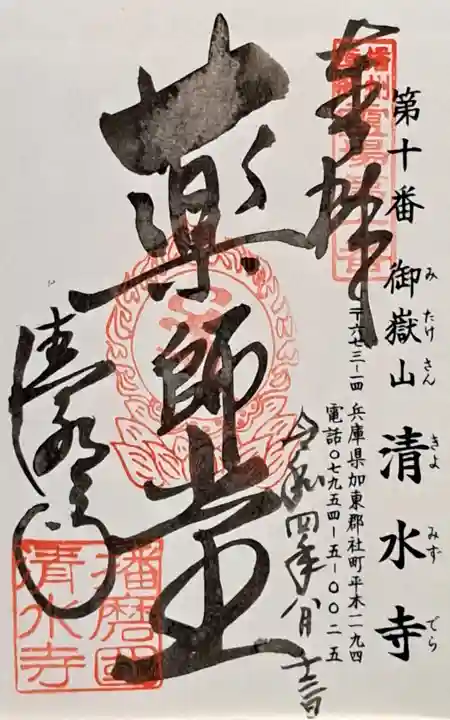 第十番 御嶽山 清水寺
みたけさん きよみずでら
〒六七三-一四 兵庫県加東郡社町平木一一九四
電話〇七九五四-五-〇〇二五
奉拝
令和四年八月十三日
薬師堂
清水寺
播磨國
清水寺